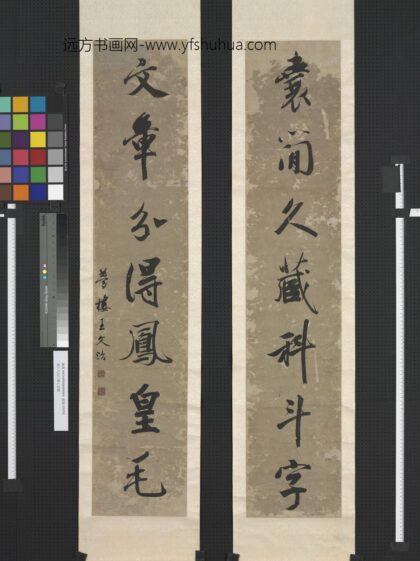 远方书画网-www.yfshuhua.com
囊简久藏科斗字
文章分得鳳皇毛
夢樓王文治